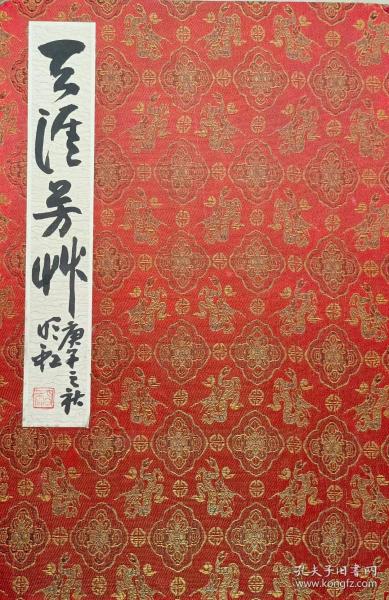 天涯芳艸
庚子之秋
孔夫子旧书网
www.kongfz.com